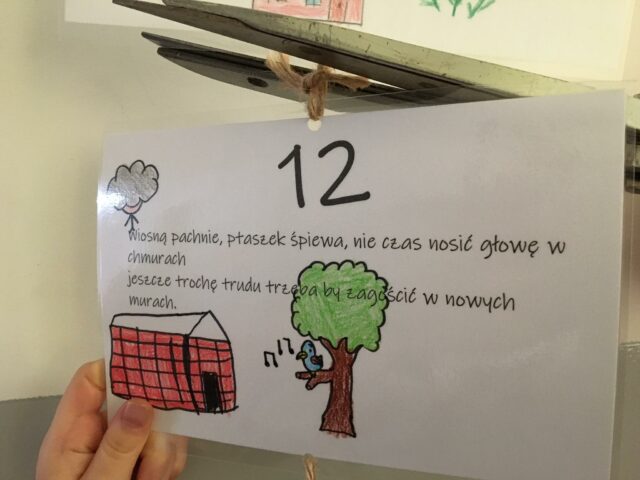 12
wiosną pachnie, ptaszek śpiewa, nie czas nosić głowę w
chmurach
jeszcze trochę trudu trzeba by zagościć w nowych
murach.